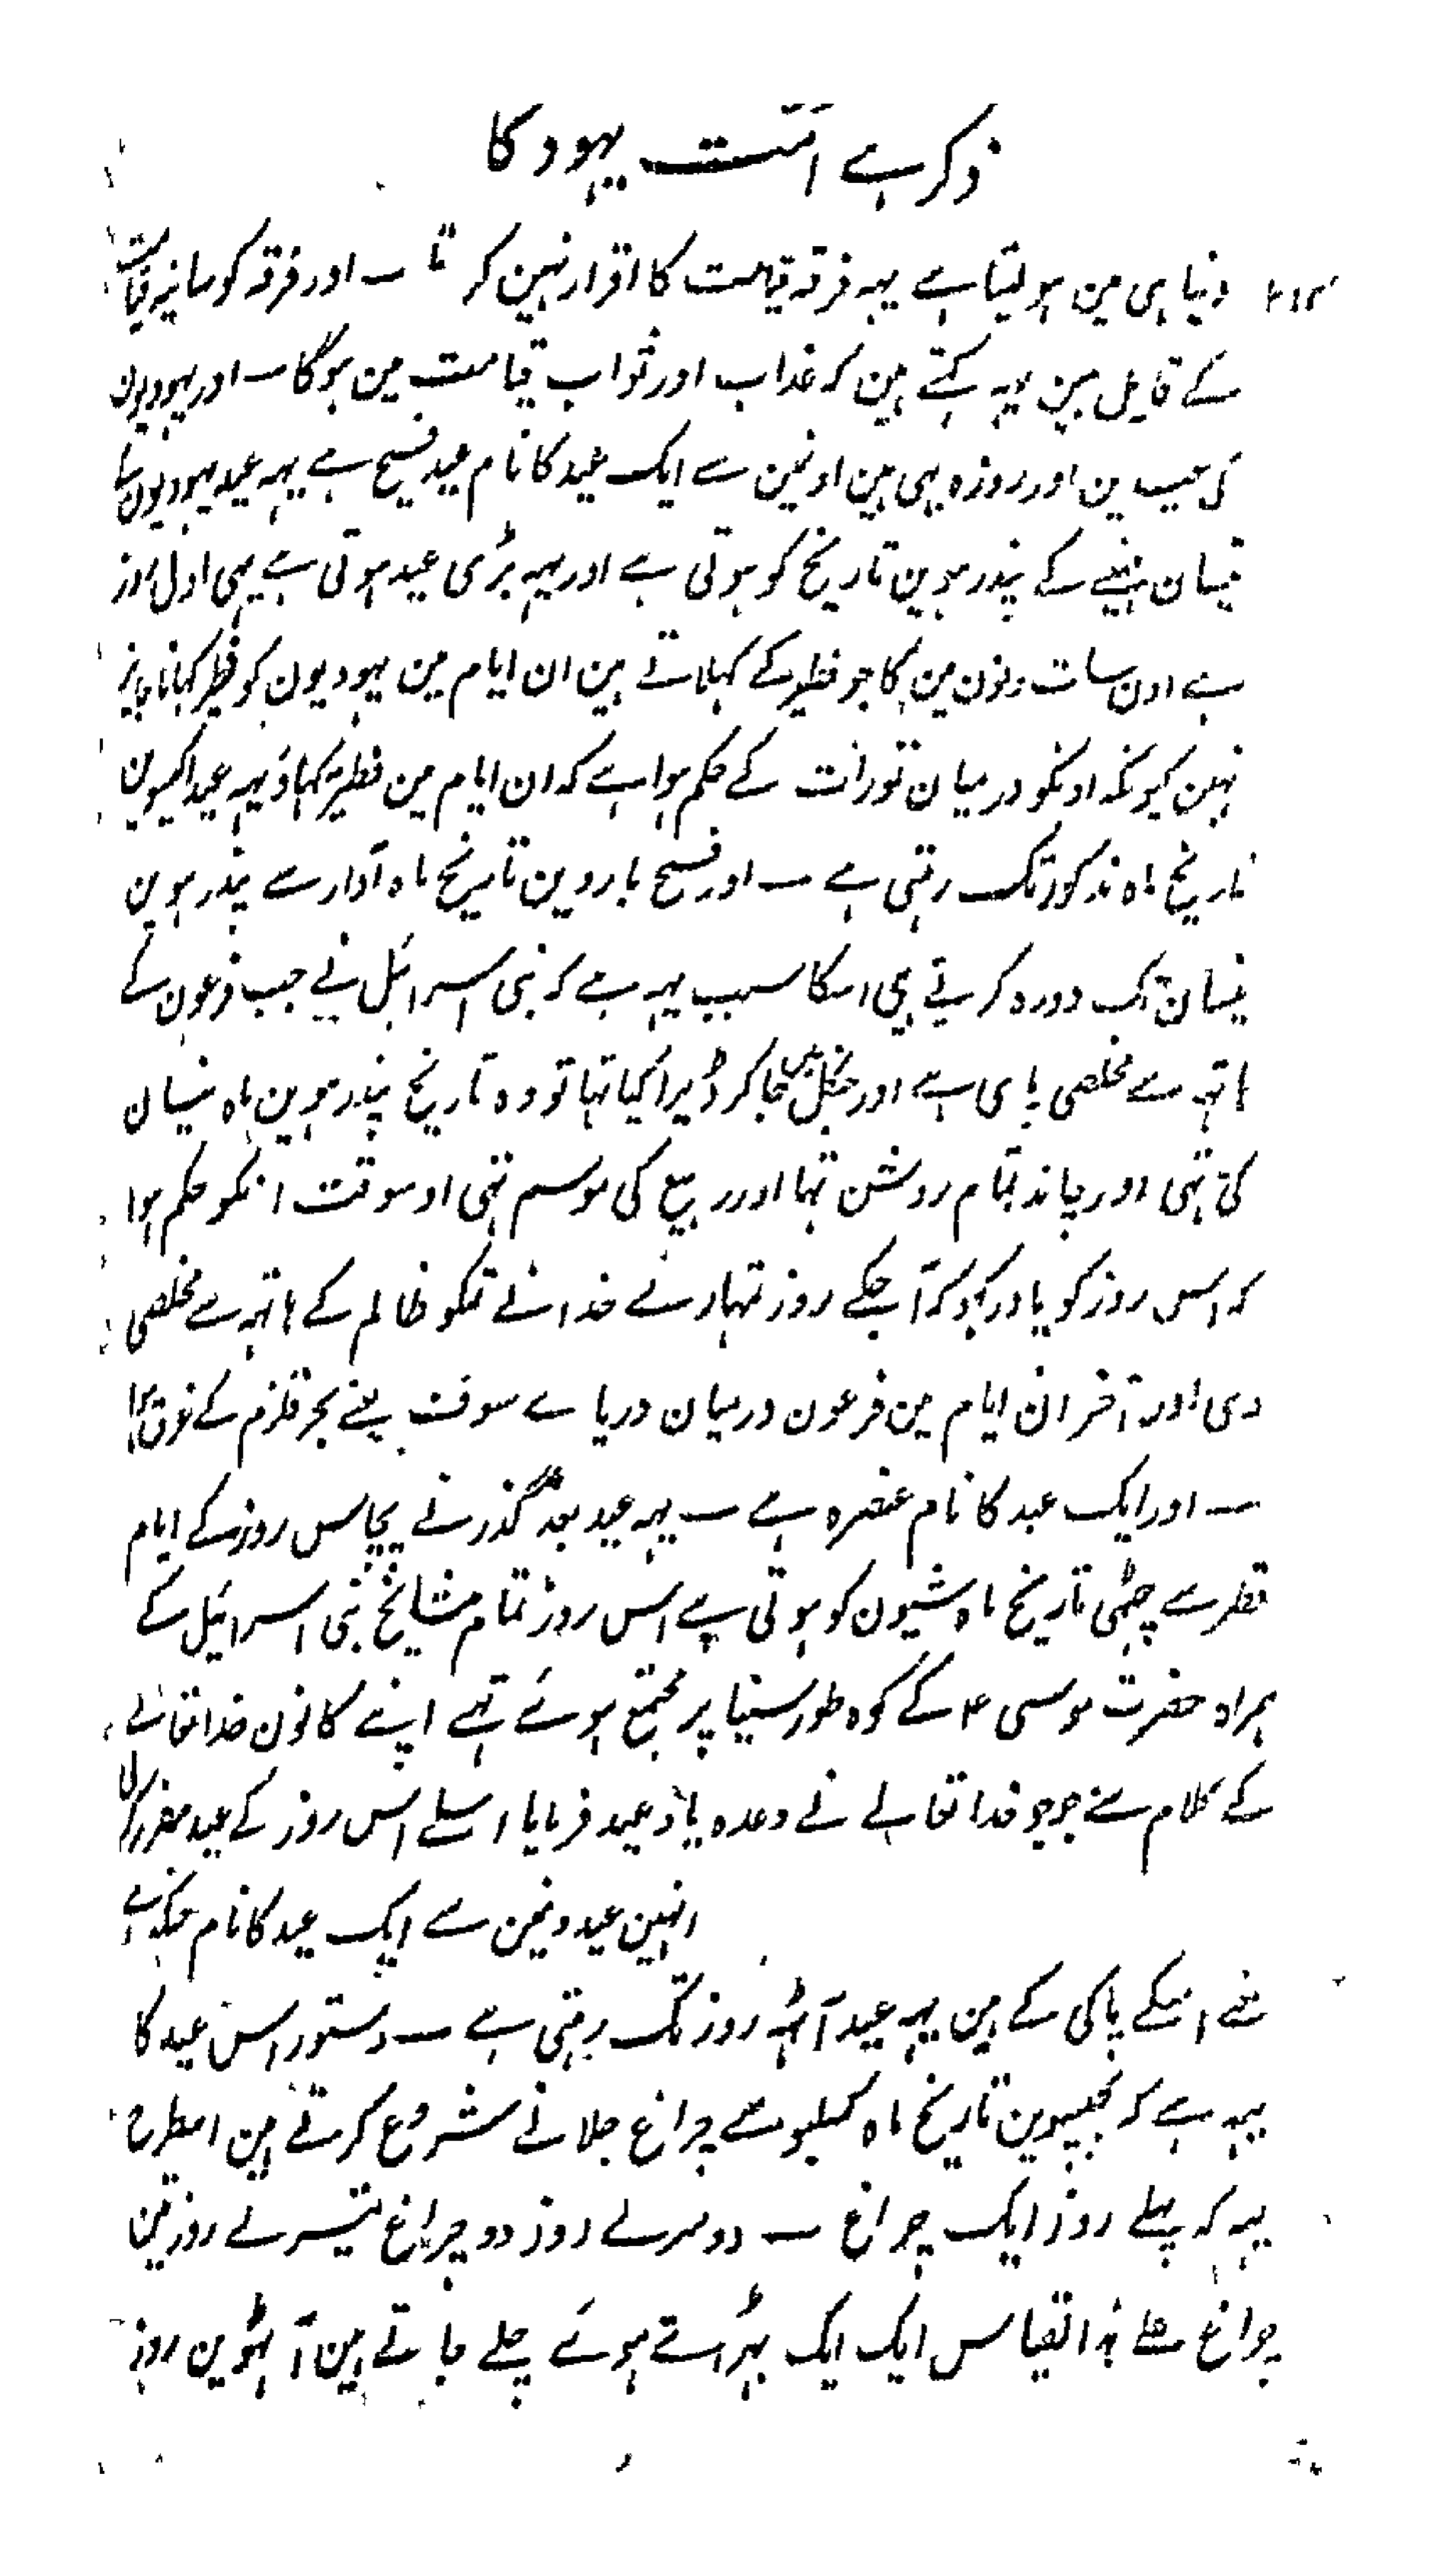 ذکر ہے امّت یہود کا
دنیا ہی مین ہولیتا ہے یہہ فرقہ قیامت کا اقرار نہین کرتا ۔ اور فرقہ کوسانیہ قیامت
کے قایل ہین یہہ کہتے ہین کہ عذاب اور ثواب قیامت مین ہوگا ۔ اور یہودیون
کی عیدین اور روزہ بہی ہین اونمین سے ایک عید کا نام عید فسح ہے یہہ عید یہودیون
نیسان مہینے کے پندرہوین تاریخ کو ہوتی ہے اور یہہ بڑی عید ہوتی ہے یہی اول روز
ہے اون سات دنون مین کا جو فطیر کے کہلاتے ہین ان ایام مین یہودیون کو فطیر کہانا جایز
نہین کیونکہ اونکو درمیان تورات کے حکم ہوا ہے کہ ان ایام مین فطیر کہاؤ یہہ عید اکیسوین
تاریخ ماہ مذکور تک رہتی ہے ۔ اور فسح باروین تاریخ ماہ آدار سے پندرہوین
نیسان تک دورہ کرتے ہی اسکا سبب یہہ ہے کہ بنی اسرائیل نے جب فرعون کے
ہاتہہ سے مخلصی پای ہے اور جنگل مین جا کر ڈیرا کیا تہا تو وہ تاریخ پندرہوین ماہ نیسان
کی تہی اور چاند تمام روشن تہا اور ربیع کی موسم تہی اوسوقت انکو حکم ہوا
کہ اس روز کو یاد رکہو کہ آجکے روز تمہارے خدا نے تمکو ظالم کے ہاتہہ سے مخلصی
دی اور آخر ان ایام مین فرعون درمیان دریاے سوف یعنے بحر قلزم کے غرق ہوا
۔ اور ایک عید کا نام عنصرہ ہے ۔ یہہ عید بعد گذرنے پچاس روز کے ایام
فطر سے چہٹی تاریخ ماہ شیون کو ہوتی ہے اس روز تمام مشایخ بنی اسرائیل کے
ہمراہ حضرت موسی ع کے کوہ طور سینا پر مجتمع ہوئے تہے اپنے کانون خداتعالے
کے کلام سنے جو جو خداتعالے نے وعدہ یا وعید فرمایا اسلے اس روز کے عید مقرر کی
انہین عیدونمین سے ایک عید کا نام حنکہ ہے
معنے اسکے پاکی کے ہین یہہ عید آٹہہ روز تک رہتی ہے ۔ دستور اس عید کا
یہہ ہے کہ پچیسوین تاریخ ماہ کسلیو سے چراغ جلانے شروع کرتے ہین اسطرح
یہہ کہ پہلے روز ایک چراغ ۔ دوسرے روز دو چراغ تیسرے روز تین
چراغ علے ہذا القیاس ایک ایک بہڑاتے ہوئے چلے جاتے ہین آٹہوین روز